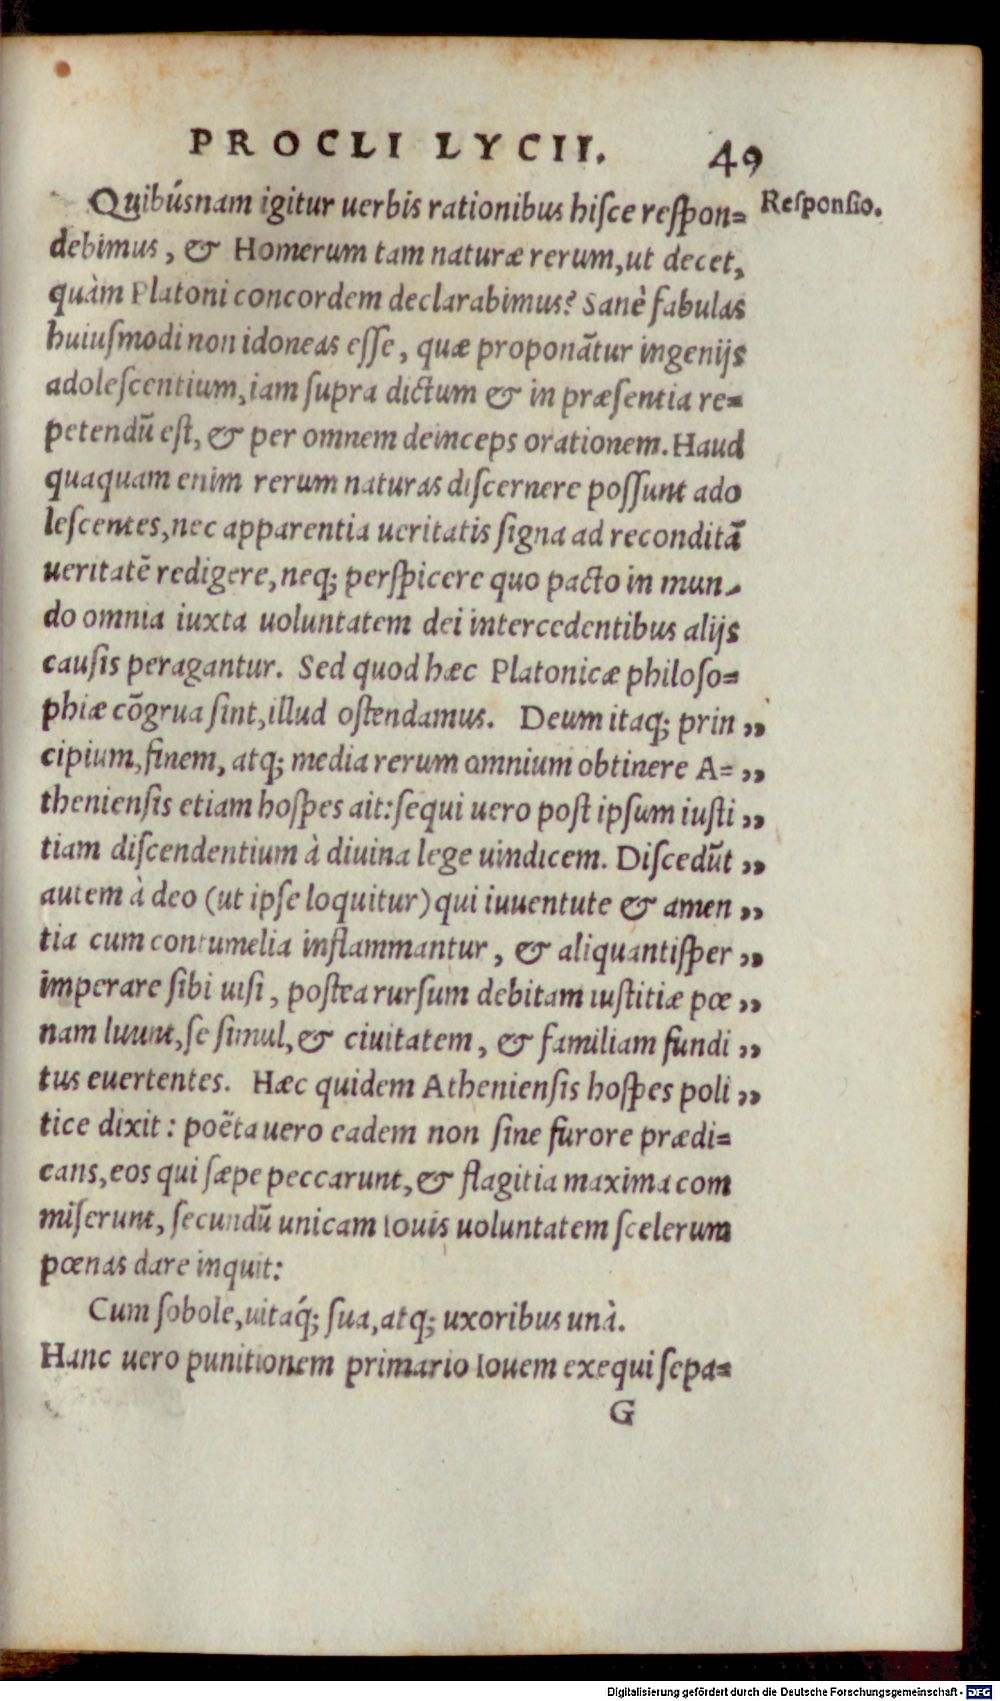 PROCLI LYCII. 49
Quibúsnam igitur uerbis rationibus hiſce reſpon= Reſponſio.
debimus, & Homerum tam naturæ rerum, ut decet,
quàm Platoni concordem declarabimus? Sanè fabulas
huiuſmodi non idoneas eſſe, quæ proponãtur ingenijs
adoleſcentium, iam ſupra dictum & in præſentia re=
petendũ eſt, & per omnem deinceps orationem. Haud
quaquam enim rerum naturas diſcernere poſſunt ado
leſcentes, nec apparentia ueritatis ſigna ad reconditã
ueritatẽ redigere, neq; perſpicere quo pacto in mun-
do omnia iuxta uoluntatem dei intercedentibus alijs
cauſis peragantur. Sed quod hæc Platonicæ philoſo=
phiæ cõgrua ſint, illud oſtendamus. Deum itaq; prin „
cipium, finem, atq; media rerum omnium obtinere A= „
thenienſis etiam hoſpes ait: ſequi uero poſt ipſum iuſti „
tiam diſcendentium à diuina lege uindicem. Diſcedũt „
autem à deo (ut ipſe loquitur) qui iuuentute & amen „
tia cum contumelia inflammantur, & aliquantiſper „
imperare ſibi uiſi, poſtea rurſum debitam iuſtitiæ pœ „
nam luunt, ſe ſimul, & ciuitatem, & familiam fundi „
tus euertentes. Hæc quidem Athenienſis hoſpes poli „
tice dixit: poëta uero eadem non ſine furore prædi=
cans, eos qui ſæpe peccarunt, & flagitia maxima com
miſerunt, ſecundũ unicam Iouis uoluntatem ſcelerum
pœnas dare inquit:
Cum ſobole, uitaq́; ſua, atq; uxoribus unà.
Hanc uero punitionem primario Iouem exequi ſepa=
G
Digitalisierung gefördert durch die Deutsche Forschungsgemeinschaft - DFG